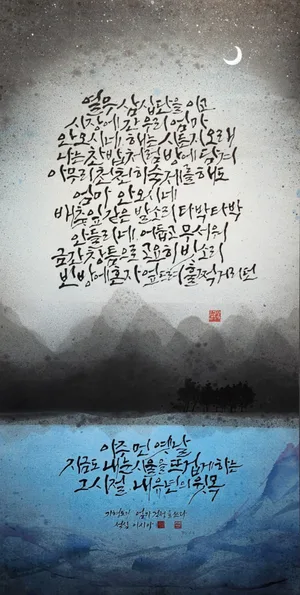 열무 삼십단을 이고
시장에 간 우리 엄마
안 오시네, 해는 시든지 오래
나는 찬밥처럼 방에 담겨
아무리 천천히 숙제를 해도
엄마 안 오시네
배춧잎 같은 발소리 타박타박
안 들리네, 어둡고 무서워
금간 창틈으로 고요히 빗소리
빈방에 혼자 엎드려 훌쩍거리던
아주 먼 옛날
지금도 내 눈시울을 뜨겁게 하는
그 시절 내 유년의 윗목